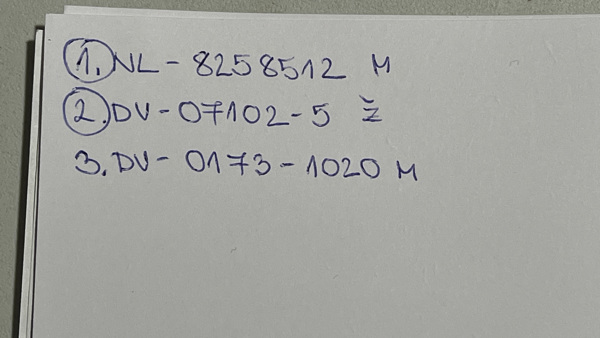 1. NL - 8258512 M
2. DV - 07102 - 5 Ž
3. DV - 0173 - 1020 M